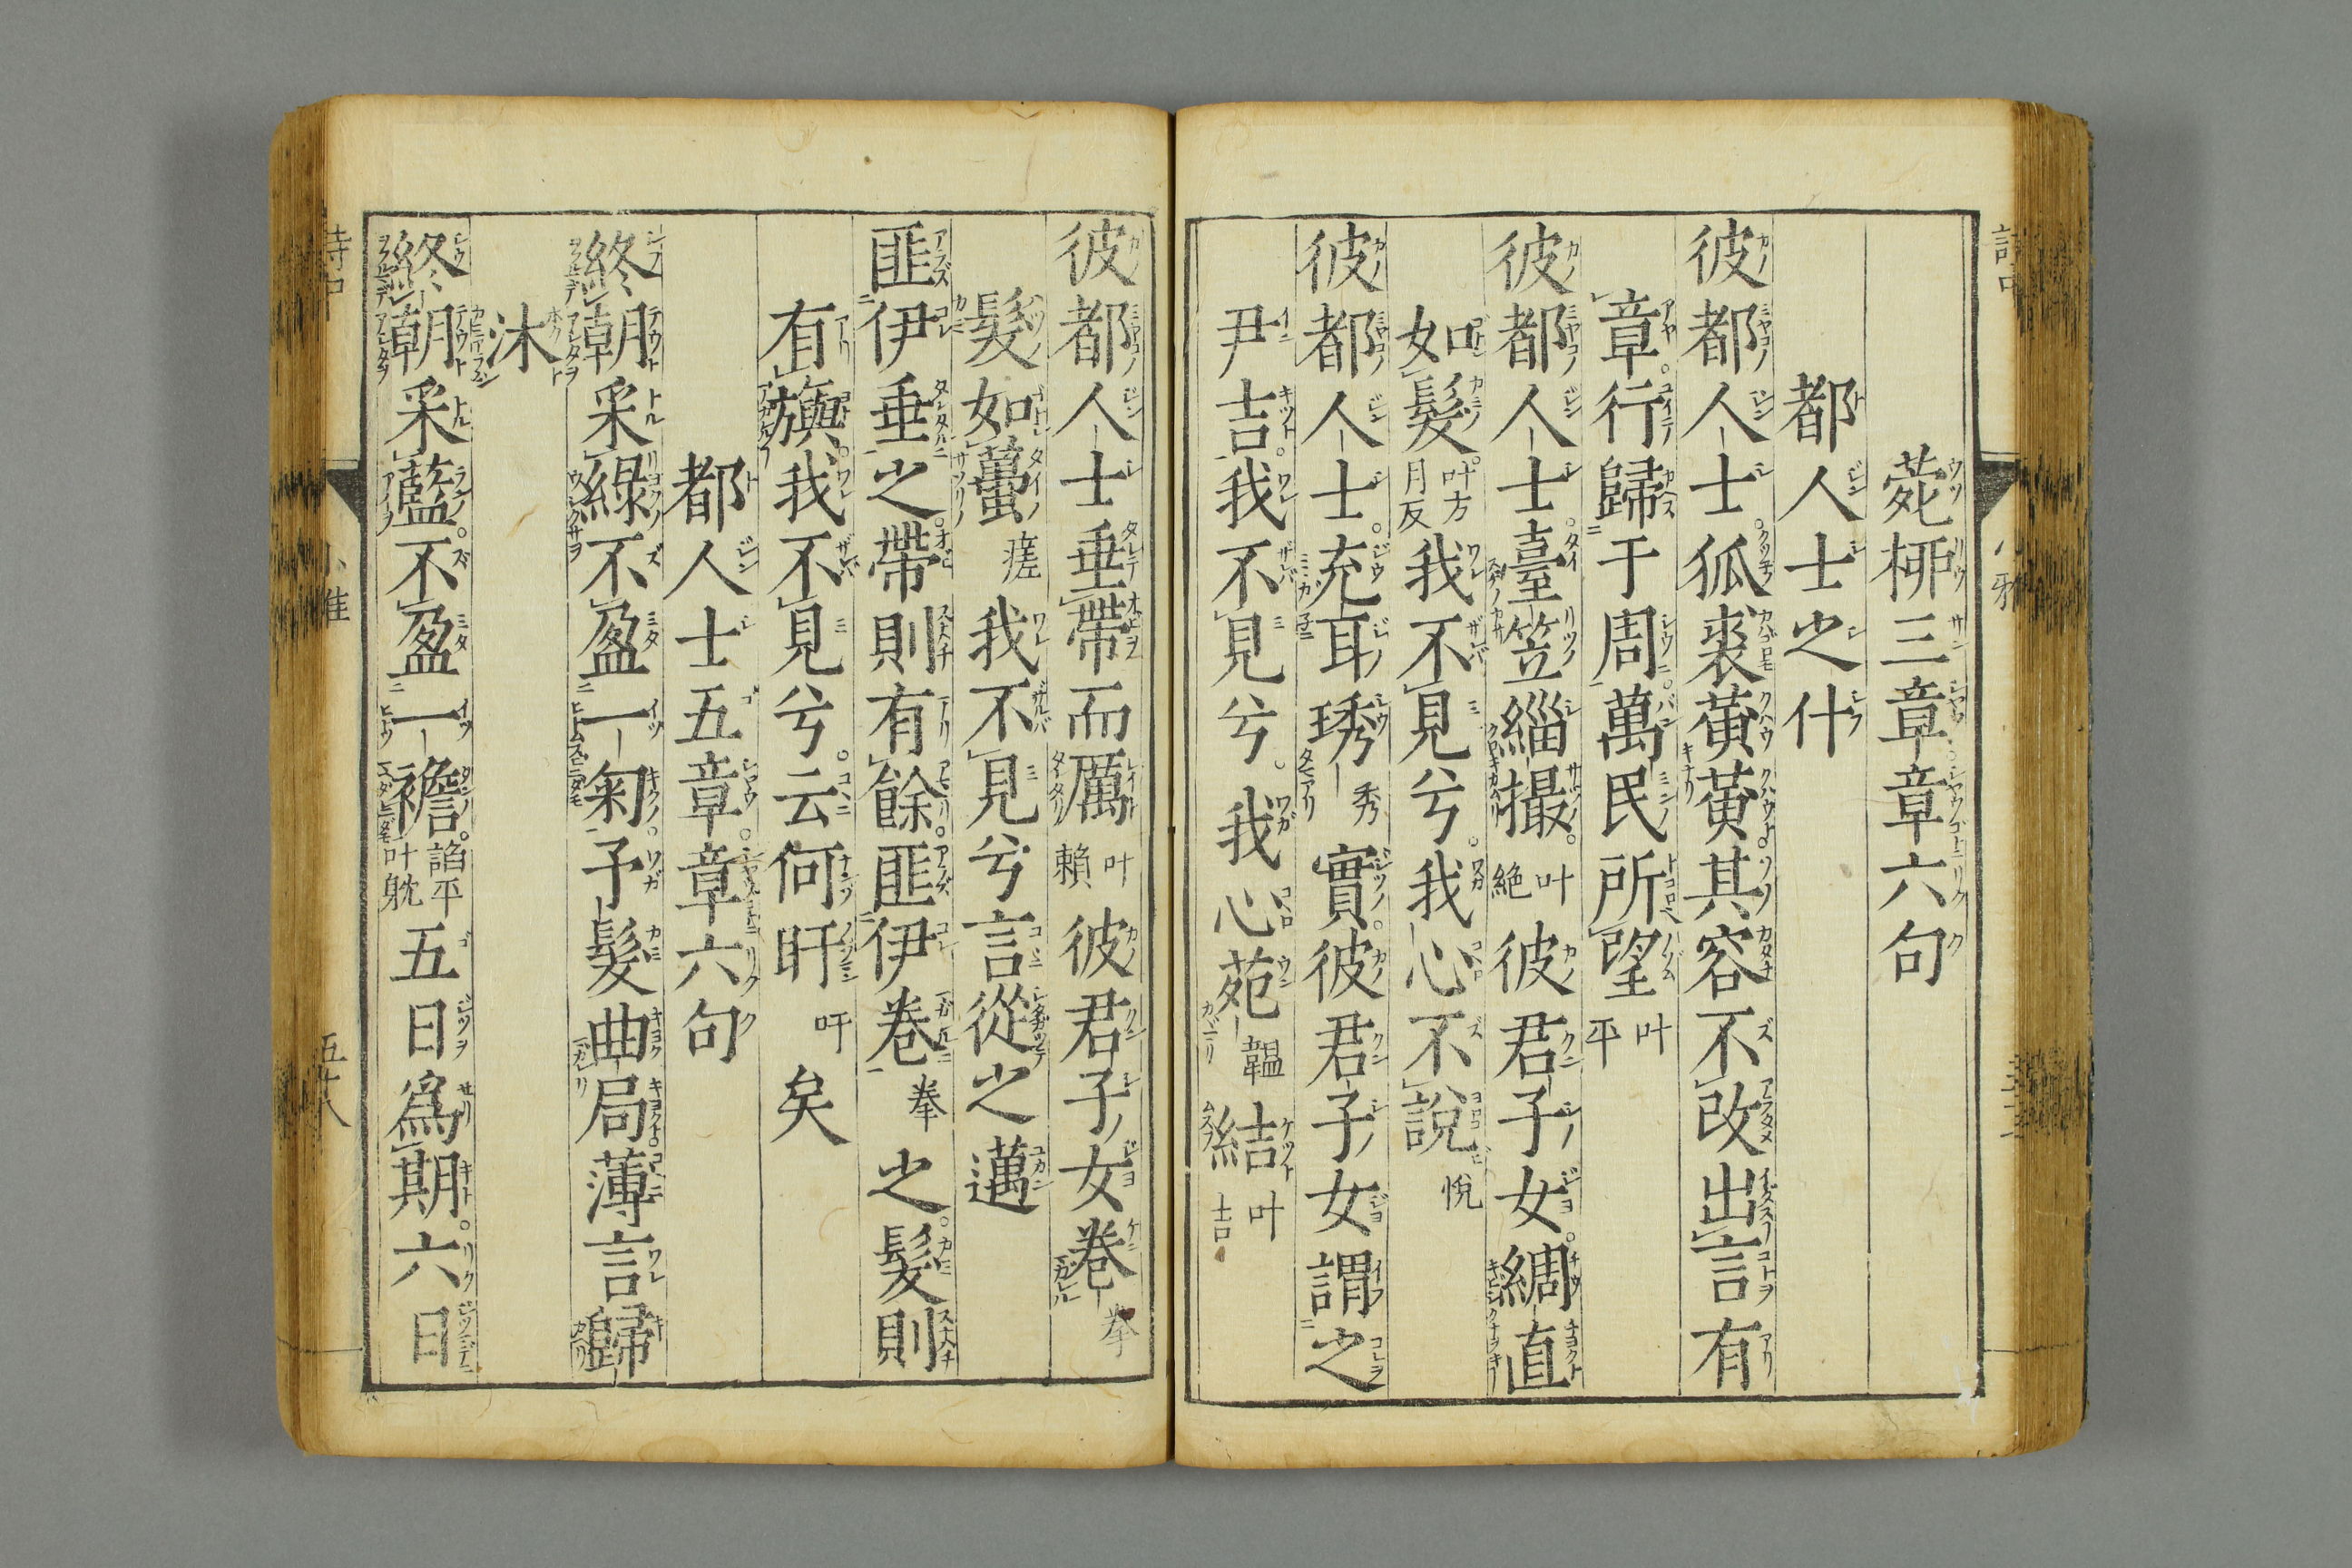 菀栁三章章六句
都人士之什
彼都人士狐裘黄黄其容不改出言有
章行歸于周萬民所望叶平
彼都人士臺笠緇撮叶絶彼君子女綢直
如髮叶方月反我不見兮我心不說悅
彼都人士充耳琇秀實彼君子女謂之
尹吉我不見兮我心苑韞結叶吉
彼都人士垂帶而厲叶賴彼君子女卷拳
髮如蠆瘥我不見兮言從之邁
匪伊垂之帶則有餘匪伊卷拳之髮則
有旟我不見兮云何盱吁矣
都人士五章章六句
終朝采綠不盈一匊予髮曲局薄言歸
沐
終朝采藍不盈一襜諂平叶躭五日爲期六日